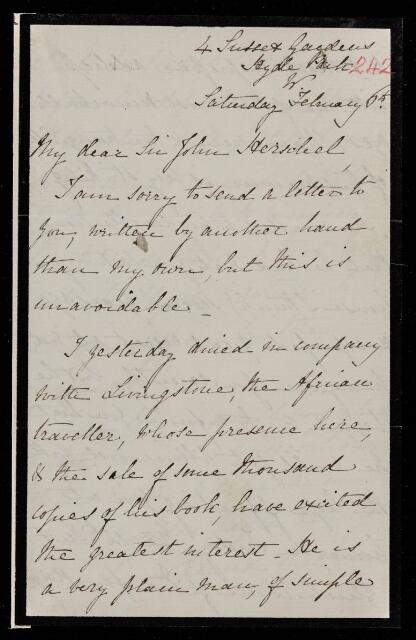 4 Sussex Gardens
Hyde Park 242
W
Saturday February 6th
My dear Sir John Herschel,
I am sorry to send a letter to
you, written by another hand
than my own, but this is
unavoidable _
I yesterday dined in company
with Livingstone, the African
traveller, whose presence here,
& the sale of some thousand
copies of his book, have excited
the greatest interest _ He is
a very plain man, of simple